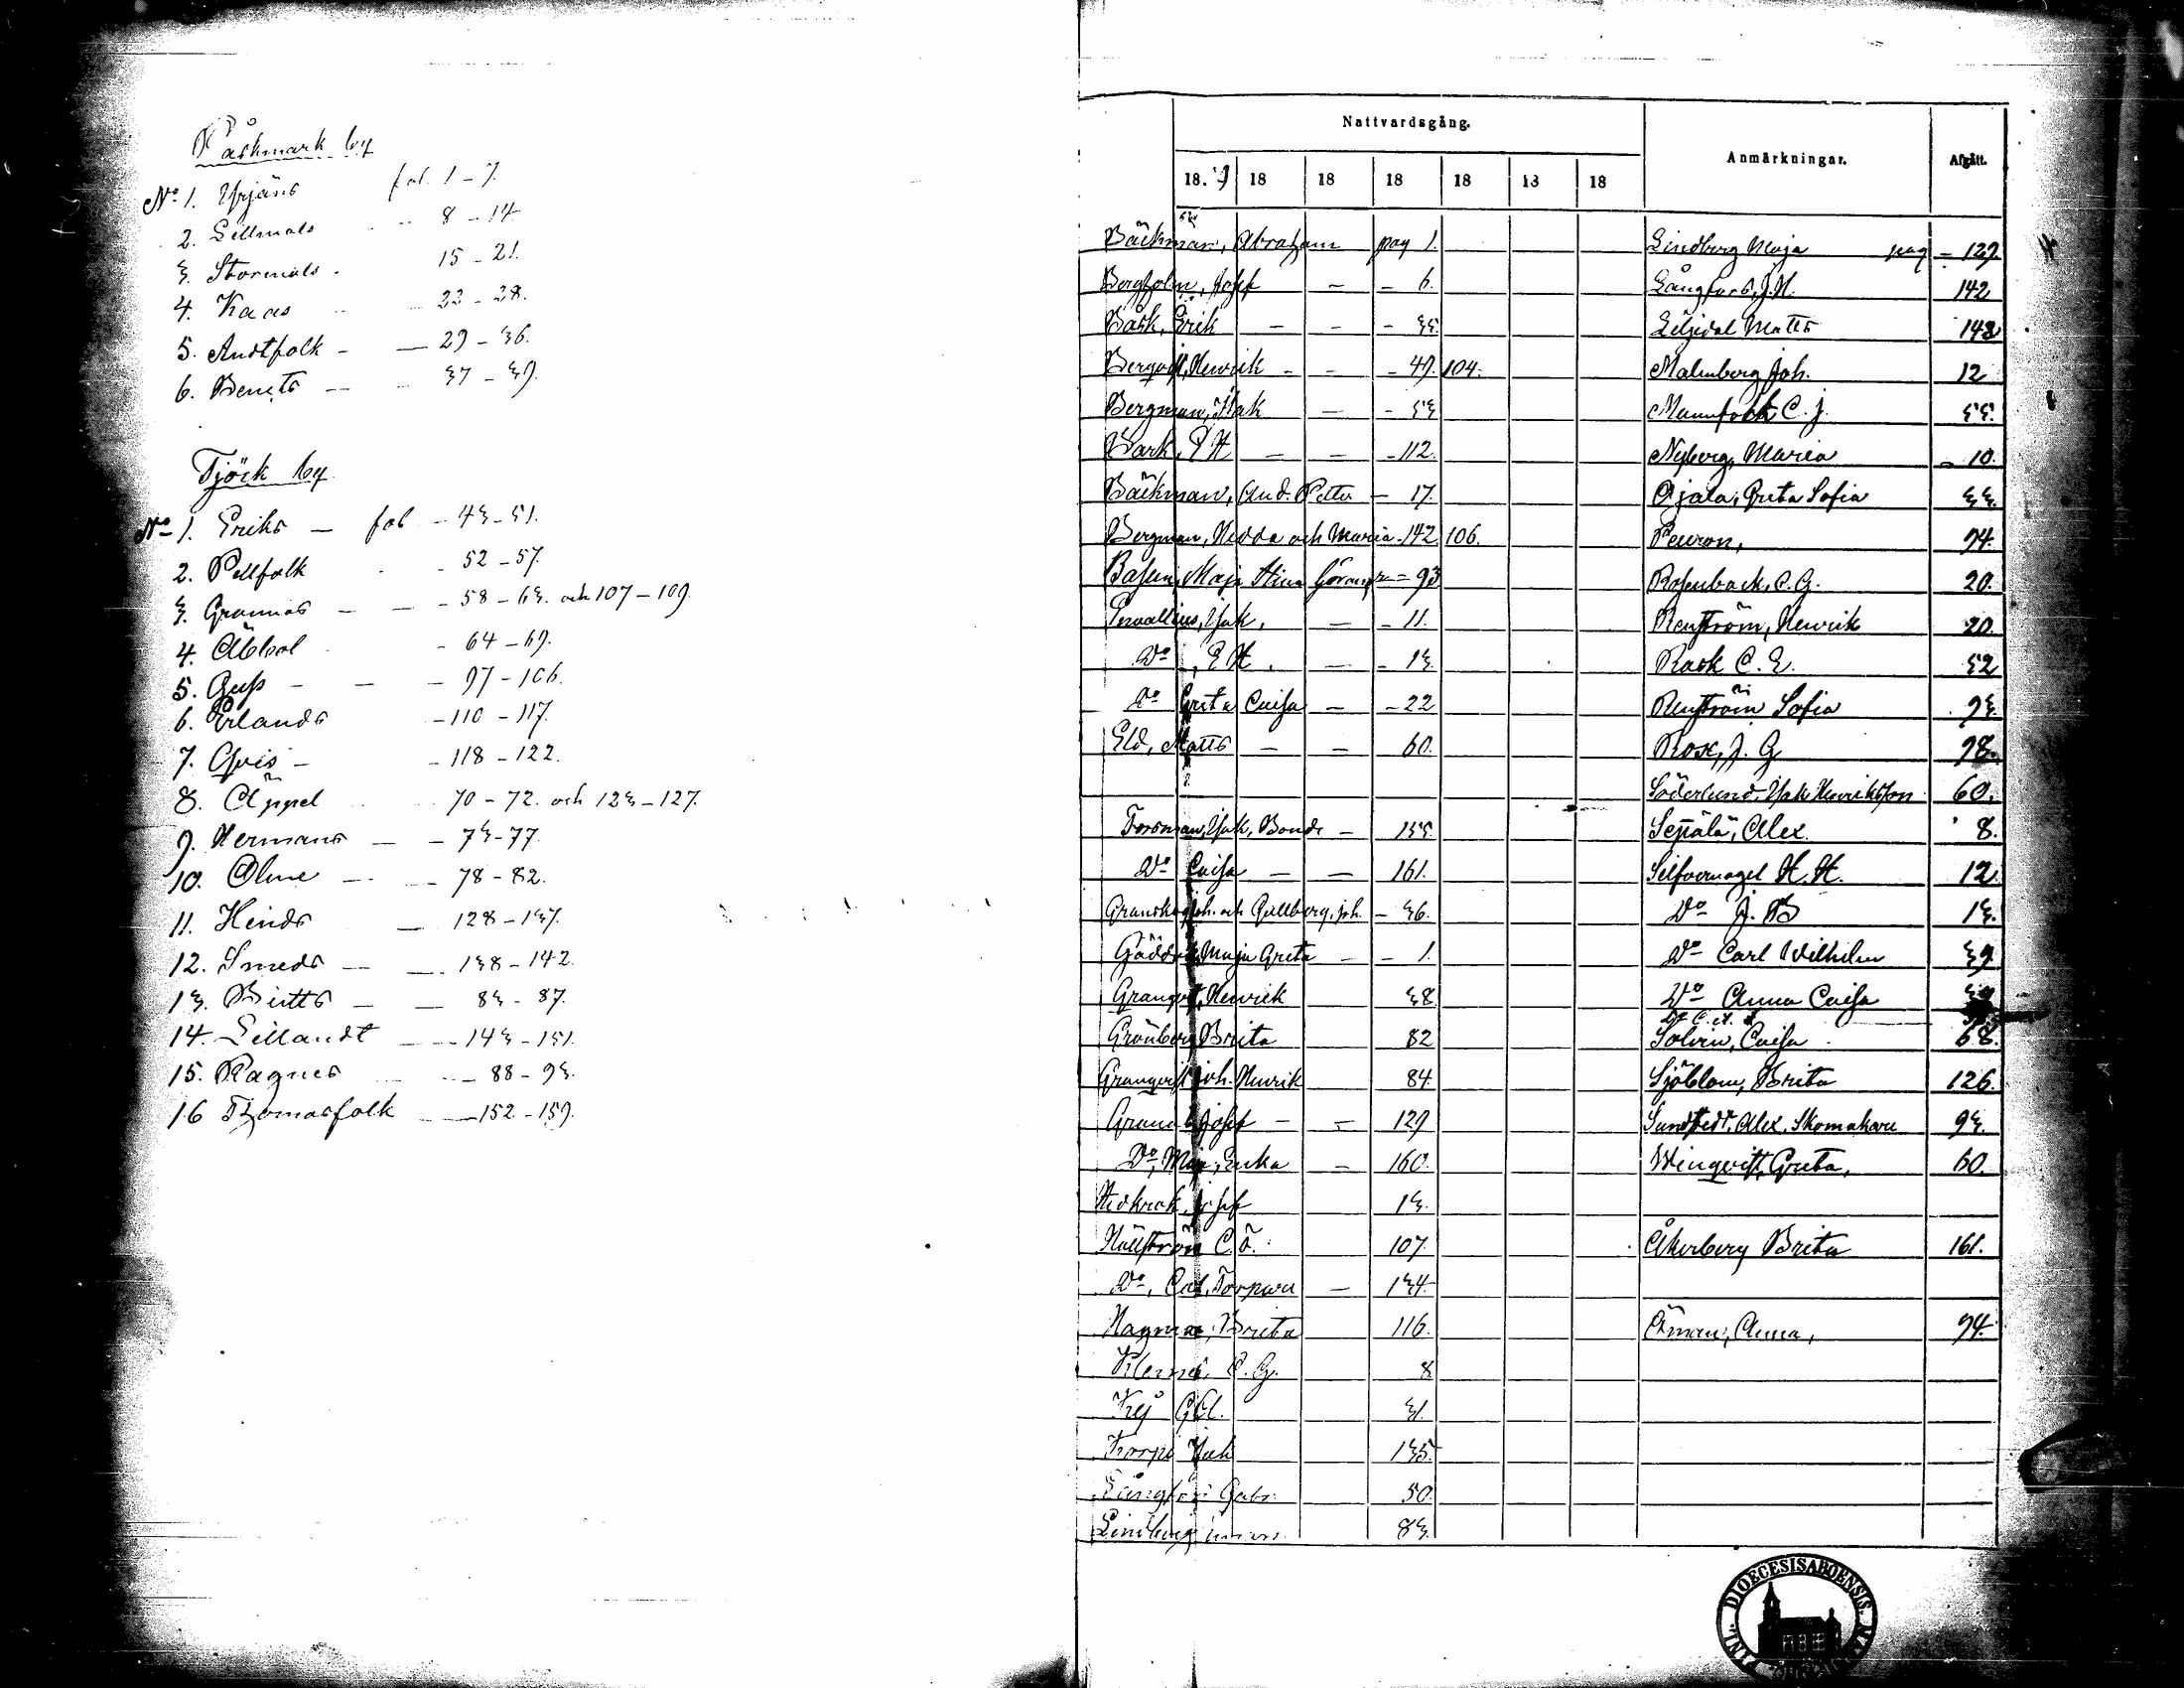 Påskmark by
No 1. Yrjäns fol. 1-7.
2. Lillmats 8-14
3. Stormats 15-21.
4. Kaas 22-28.
5. Andtfolk - 29-36.
6. Bengts 37-39.
Tjöck by
No 1. Eriks - fol - 43-51.
2. Pellfolk 52-57.
3. Grannas - 58-63. och 107-109.
4. Abbal 64-69.
5. Guss - 97-106.
6. Erlands 110-117.
7. - 118-122.
8. Äppel 70-72. och 123-127.
9. Hermans - 73-77.
10. Olme - 78-82.
11. Hinds - 128-137.
12. Smeds - 138-142.
13. Britts - 83-87.
14. Lillandt - 143-151.
15. Ragnes 88-93.
16 Thomasfolk - 152-159.
Nattvardsgång. Anmärkningar. Afgått.
18. 18 18 18 18 18 18
Bäckman, Abraham pag 1.
Bergholm, Josef - 6.
Bäck, Erik - 33.
Bergqvist, Henrik - 49. 104.
Bergman, Isak - 53
Bark, E H - 112.
Bäckman, And. Petter - 17.
Bergman, Hedda och Maria - 142 106.
Maja Stina 93
Isak, - 11.
Do, E H. - 13.
Do Greta Caisa - 22
Eld, Matts - 60.
Forsman, Isak, Bonde - 155.
Do Caisa - 161.
Granskog Joh. och Gullberg, Joh. - 36.
Maja Greta - 1.
Granqvist, Henrik 38
Grönberg Brita 82
Granqvist Joh. Henrik 84.
Josef - 129
Do, Maja, Erika - 160.
Hedkrok, Josef 13.
Hällström C. O. 107.
Do, Torpare - 134.
Hagman, Brita 116.
C. G. 8
G A. 31.
Korpi Isak 135.
Långfors Gabr. 50.
Lindberg 83.
Lindberg Maja pag - 129.
Långfors, J. H. 142
Liljedal Matts 143
Malmberg Joh. 12
Mannfolk C. J. 55.
Nyberg, Maria - 10.
Ojala, Greta Sofia 33.
Peuron, 94.
Rosenback, C. G. 20.
Renström, Henrik 20.
Rask C. E. 52
Renström Sofia 93.
Ros, J. G 98.
Söderlund, Isak Henriksson 60.
Sepälä, Alex. 8.
Silfvernagel H. H. 12
Do J. B 13.
Do Carl Wilhelm 39
Do Anna Caisa 39
Solvin, Caisa 68.
Sjöblom, Brita 126.
Sundstedt, Alex. Skomakare 93.
Winqvist, Greta, 60.
Åkerberg Brita 161.
Öman, Anna, 94.
DIOECESIS ABOENSIS